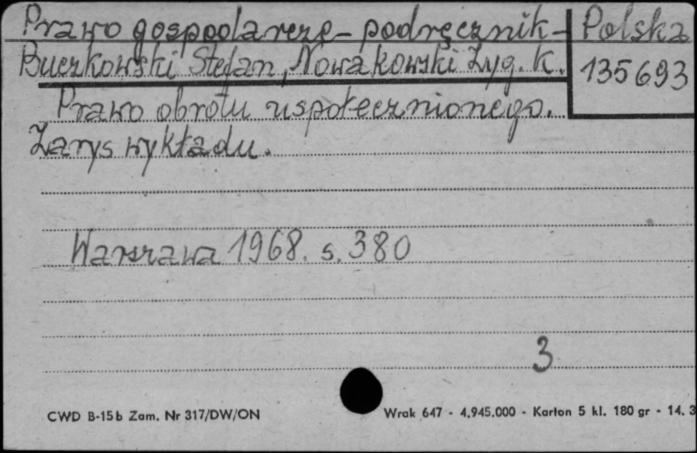 Prawo gospodarcze - podręcznik - Polska
Buczkowski Stefan, Nowakowski Zyg. K. 135693
Prawo obrotu uspołecznionego.
Zarys wykładu.
Warszawa 1968. s. 380
3
CWD B-15b Zam. Nr 317/DW/ON Wrak 647 - 4.945.000 - Karton 5 kl. 180 gr - 14. 3